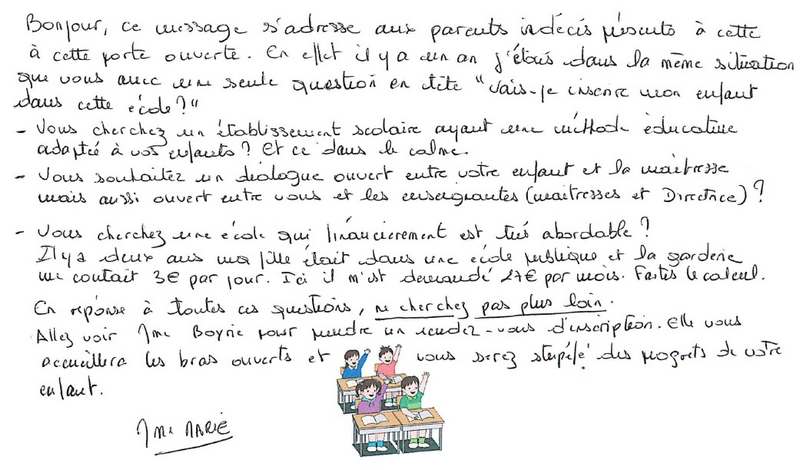 Bonjour, ce message s'adresse aux parents indécis présents à cette
à cette porte ouverte. En effet il y a un an j'étais dans la même situation
que vous avec une seule question en tête "Vais-je inscrire mon enfant
dans cette école?"
- Vous cherchez un établissement scolaire ayant une méthode éducative
adaptée à vos enfants? Et ce dans le calme.
- Vous souhaitez un dialogue ouvert entre votre enfant et la maîtresse
mais aussi ouvert entre vous et les enseignantes (maitresses et Directrice)?
- Vous cherchez une école qui financièrement est très abordable?
Il y a deux ans ma fille était dans une école publique et la garderie
me coutait 3€ par jour. Ici il m'est demandé 27€ par mois. Faites le calcul.
En réponse à toutes ces questions, ne cherchez pas plus loin.
Allez voir Mme Boyrie pour prendre un rendez-vous d'inscription. Elle vous
accueillera les bras ouverts et vous serez stupéfé des progrets de votre
enfant.
Mme MARIE